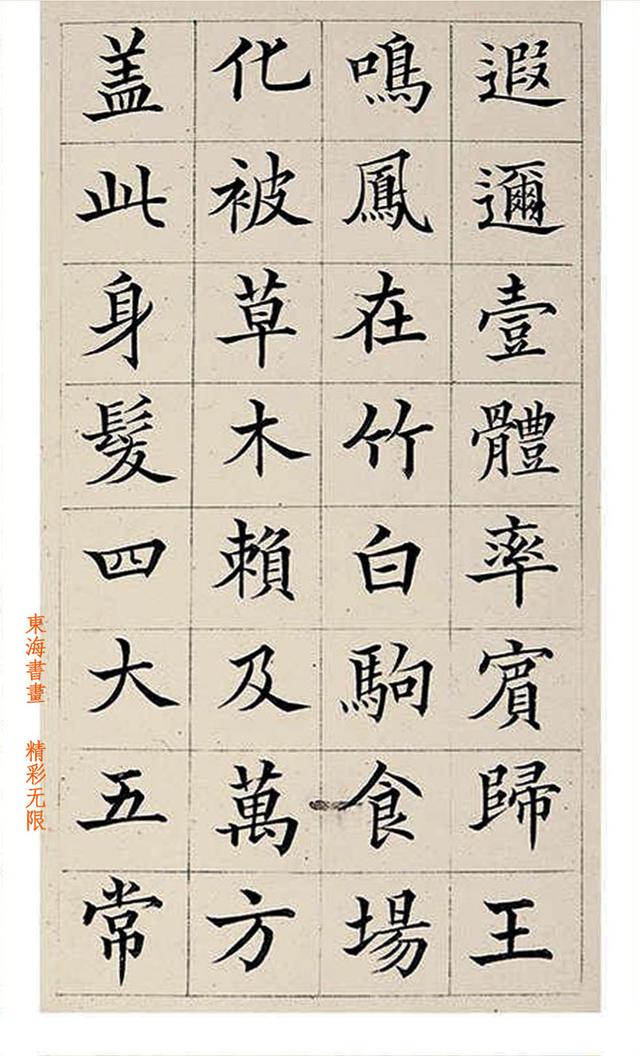 遐邇壹體率賓歸王
鳴鳳在竹白駒食場
化被草木賴及萬方
蓋此身髮四大五常
東海書畫 精彩无限